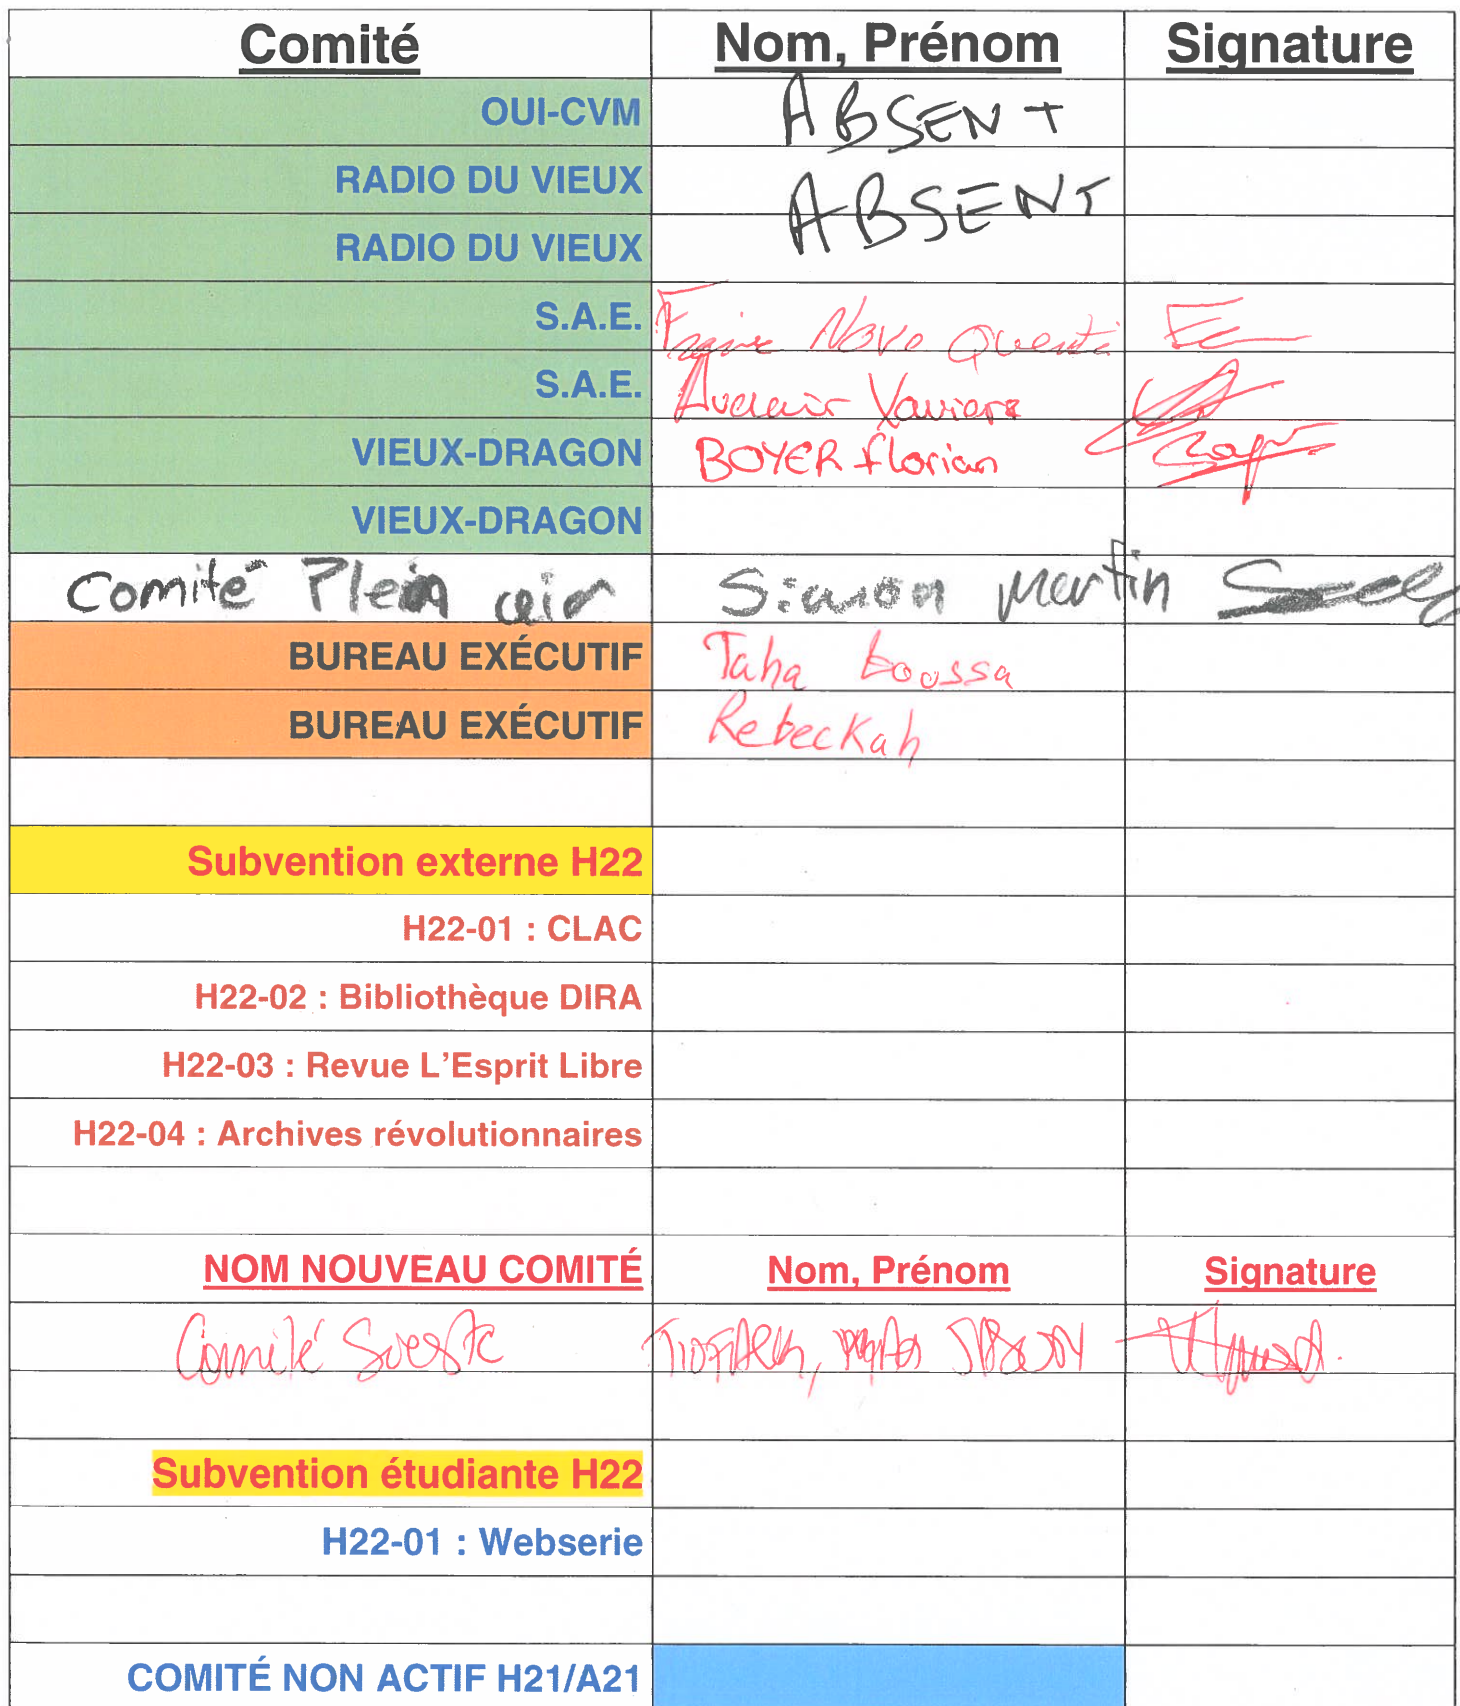 Comité Nom, Prénom Signature
OUI-CVM ABSENT
RADIO DU VIEUX ABSENT
RADIO DU VIEUX
S.A.E. Novo
S.A.E.
VIEUX-DRAGON BOYER florian
VIEUX-DRAGON
Comité Plein air Simon Martin
BUREAU EXÉCUTIF Taha boussa
BUREAU EXÉCUTIF Rebeckah
Subvention externe H22
H22-01 : CLAC
H22-02 : Bibliothèque DIRA
H22-03 : Revue L'Esprit Libre
H22-04 : Archives révolutionnaires
NOM NOUVEAU COMITÉ Nom, Prénom Signature
Comité
Subvention étudiante H22
H22-01 : Webserie
COMITÉ NON ACTIF H21/A21